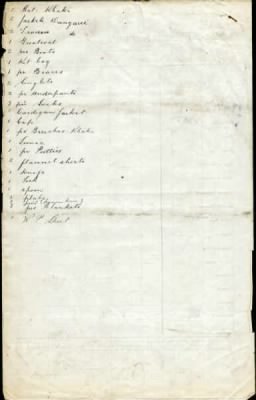 1 Hat. Khaki
2 Jackets Dungaree
2 Trousers do
1 Greatcoat
2 prs Boots
1 Kit bag
1 pr Braces
2 Singlets
2 pr underpants
3 prs Socks
1 Cardigan Jacket
1 Cap
1 pr Breeches Khaki
1 Tunic
1 pr Putties
2 flannel shirts
1 Knife
1 Fork
1 spoon
2 Plates
2 prs Blankets
1 W. P. Sheet